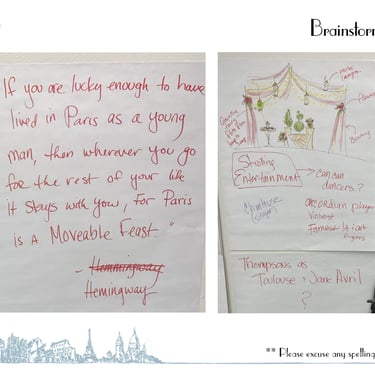 Brainstorm
If you are lucky enough to have
lived in Paris as a young
man, then wherever you go
for the rest of your life
it stays with you, for Paris
is a Moveable Feast."
- Hemmingway
Hemingway
rose
lamps
flowers
Bunting
Strolling
Entertainment
can can
dancers?
Chanteuse
(singer)
accordian player
Violinist
Famous
figures
Thompsons as
Toulouse + Jane Avril
?
** Please excuse any spelling